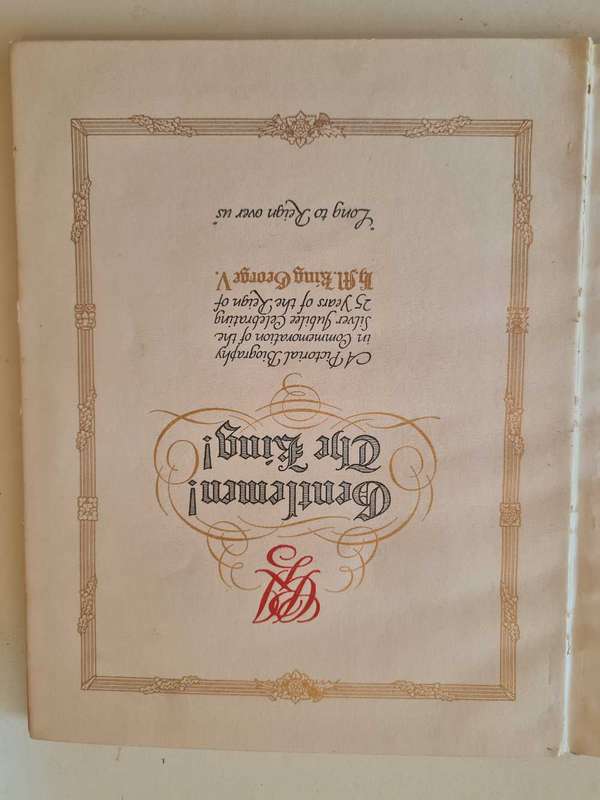 Gentlemen!
The King!
A Pictorial Biography
in Commemoration of the
Silver Jubilee Celebrating
25 Years of the Reign of
H.M. King George V.
"Long to Reign over us"